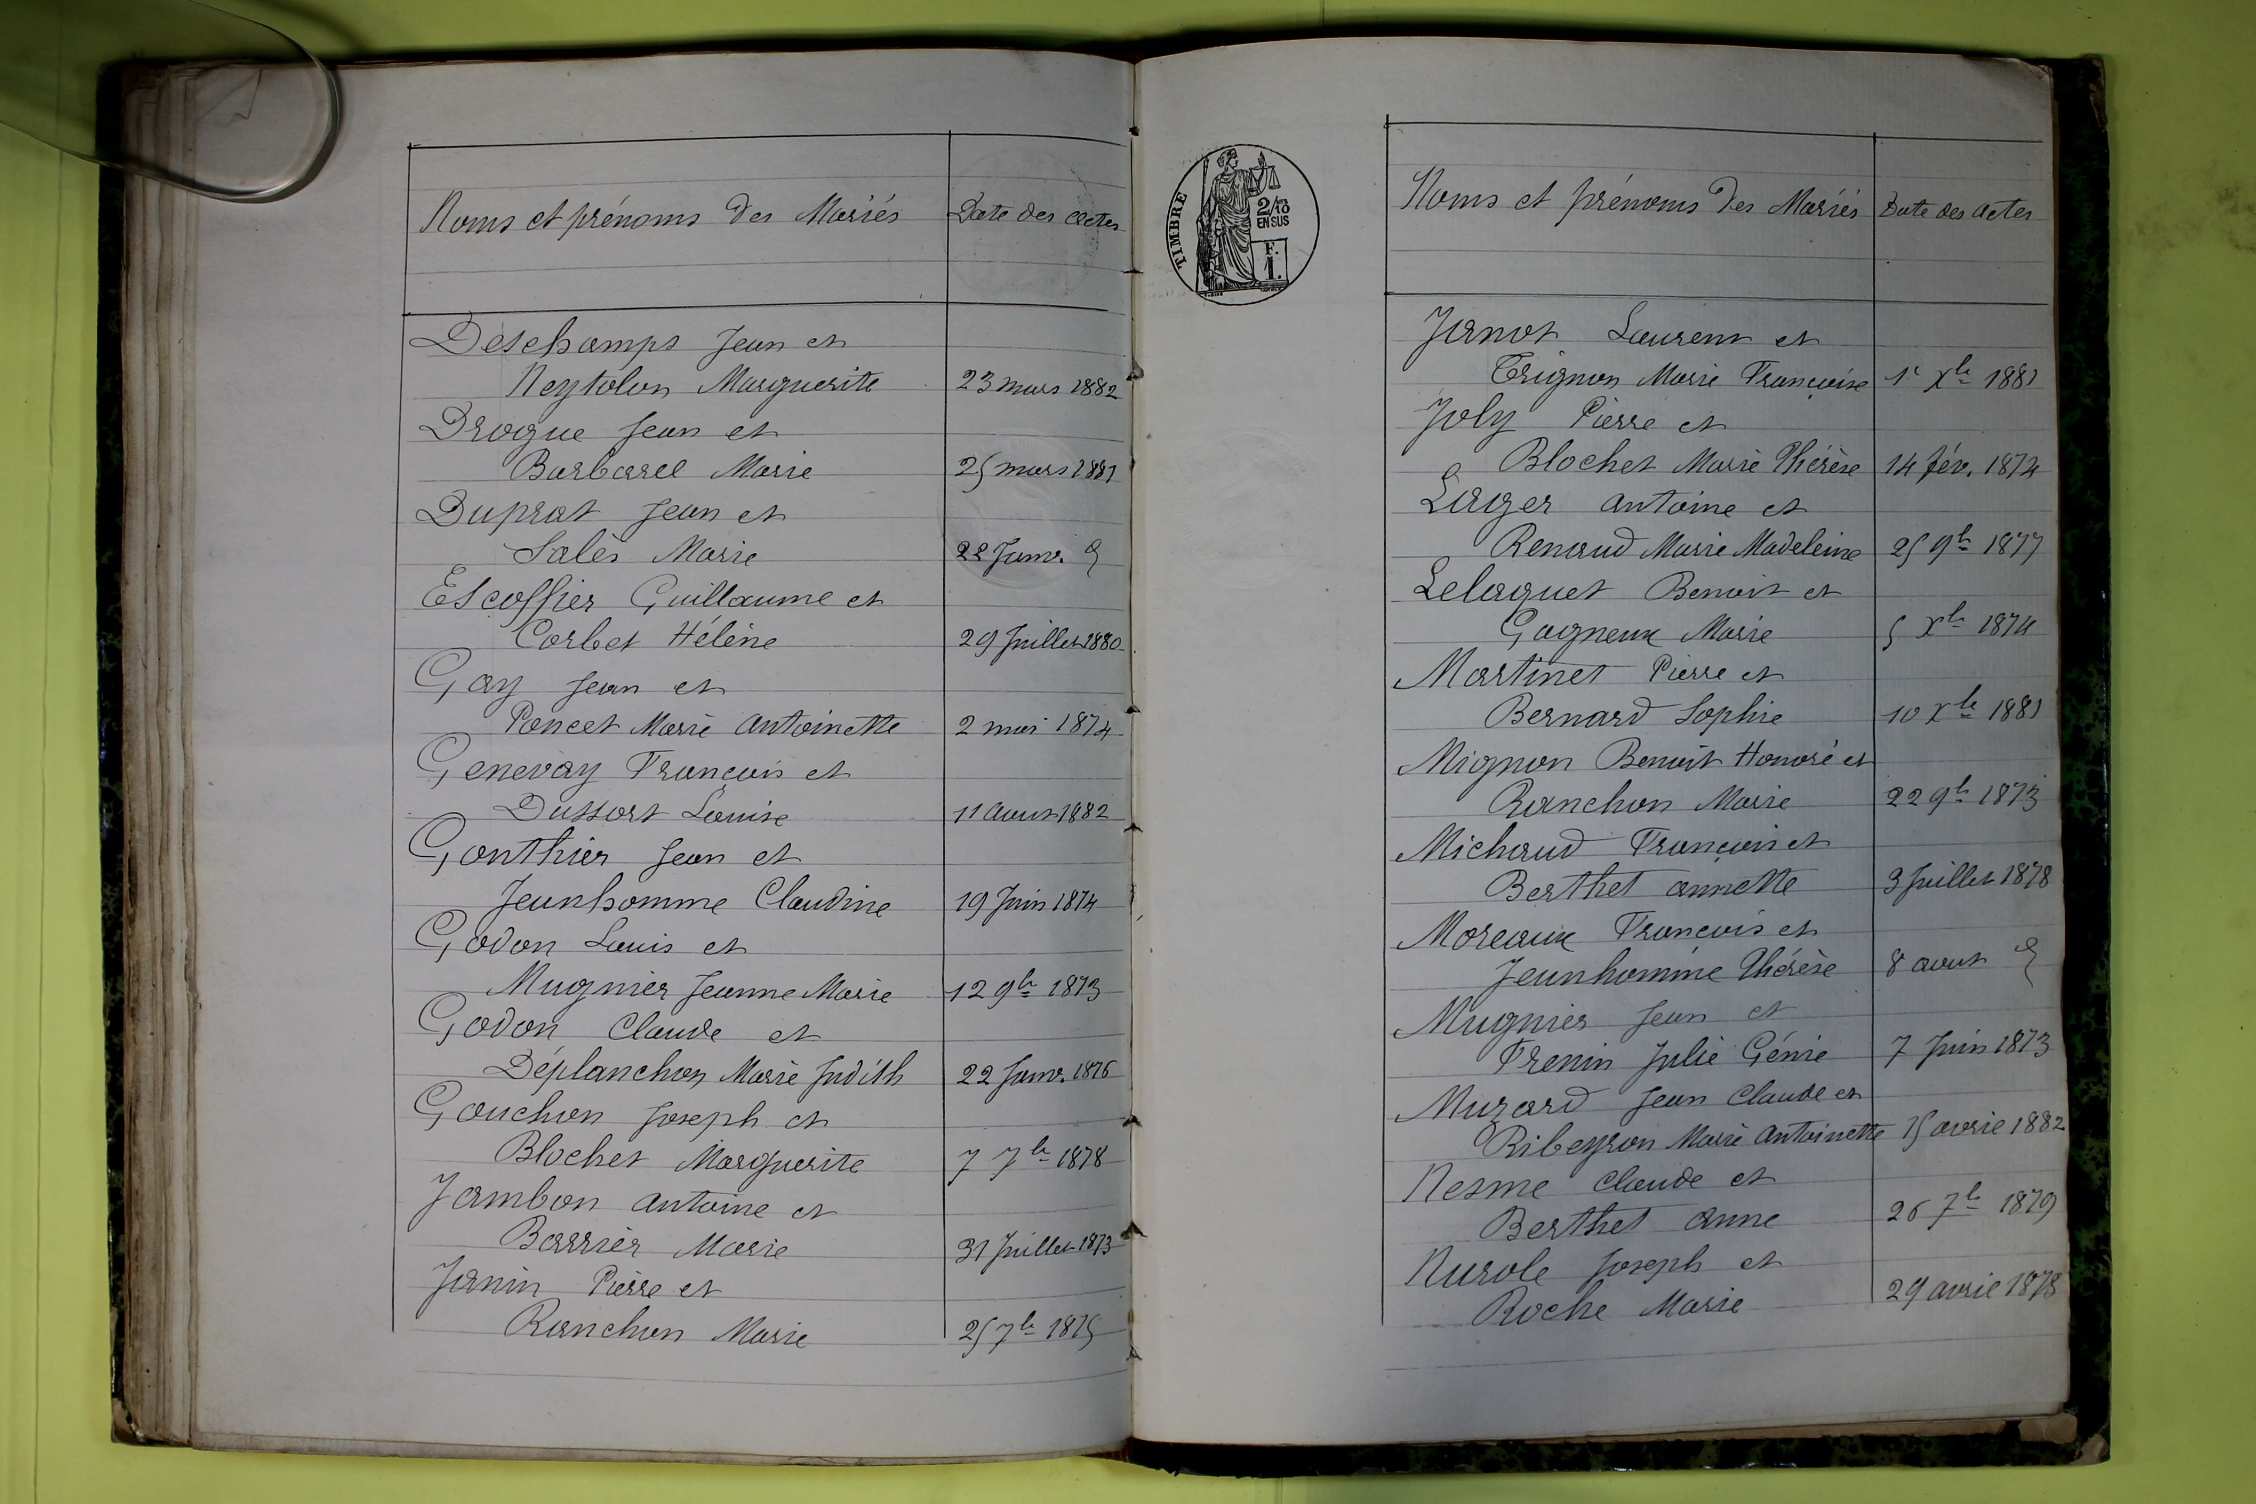 Noms et prénoms des Mariés Date des actes
Deschamps Jean et
Neytolon Marguerite 23 mars 1882
Drogue Jean et
Barbarel Marie 25 mars 1881
Duprat Jean et
Salès Marie 22 Janv. d
Escoffier Guillaume et
Corbet Hélène 29 Juillet 1880
Gay Jean et
Poncet Marie Antoinette 2 mai 1874
Genevay François et
Dussort Louise 11 aout 1882
Gonthier Jean et
Jeunhomme Claudine 19 Juin 1874
Godon Louis et
Mugnier Jeanne Marie 12 9bre 1873
Godon Claude et
Déplanchon Marie Judith 22 Janv. 1876
Gouchon Joseph et
Blochet Marguerite 7 7bre 1878
Jambon Antoine et
Barrier Marie 31 Juillet 1873
Janin Pierre et
Ranchon Marie 25 7bre 1875
TIMBRE
2/10
EN SUS
F.
1.
Noms et prénoms des Mariés Date des actes
Janot Laurent et
Trignon Marie Françoise 1r Xbre 1881
Joly Pierre et
Blochet Marie Thérèse 14 fév. 1874
Lager Antoine et
Renaud Marie Madeleine 25 9bre 1877
Lelaquet Benoit et
Gagneux Marie 5 Xbre 1874
Martinet Pierre et
Bernard Sophie 10 Xbre 1881
Mignon Benoit Honoré et
Ranchon Marie 22 9bre 1873
Michaud François et
Berthet Annette 3 Juillet 1878
Moreaux François et
Jeunhomme Thérèse 8 aout d
Mugnier Jean et
Frenin Julie Génie 7 Juin 1873
Muzard Jean Claude et
Ribeyron Marie Antoinette 15 avril 1882
Nesme Claude et
Berthet Anne 26 7bre 1879
Nurole Joseph et
Roche Marie 29 avril 1878